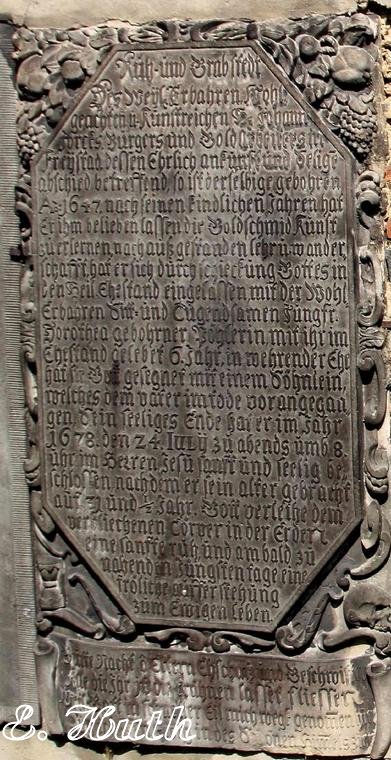 Ruh- und Grabstedt
Des Weyl. Erbahren Wohl
geachten u Kunstreichen Hr Johann
Bürgers und Gold Arbeiters in
Freystad dessen Ehrlich ankunft und selige
abschied betreffend, so ist derselbige gebohren
Ao 1647. nach seinen kindlichen Jahren hat
Er ihm belieben lassen die Goldschmid Kunst
zu erlernen nach auß gestanden lehr u wander
schafft hat er sich durch schickung Gottes in
den Heil. Ehestand eingelassen mit der Wohl
Erbahren und Tugendsamen Jungfr.
Dorothea gebohrner Köhlerin, mit ihr im
Ehestand gelebet 6. Jahr, in wehrender Ehe
hat sie Gott gesegnet mit einem Söhnlein
welches dem vater im tode vorangegan
gen, Sein seeliges Ende hat er im Jahr
1678. den 24. IULIJ zu abends umb 8.
uhr im Herren Jesu sanft und seelig be
schlossen, nachdem er sein alter gebracht
auf 31 und ½ Jahr. Gott verleihe dem
verblichenen Cörper in der Erden
eine sanfte ruh und am bald zu
nahenden Jüngsten tage eine
fröliche aufferstehung
zum Ewigen leben.
und
lasset fliessen
genomen
E. Huth